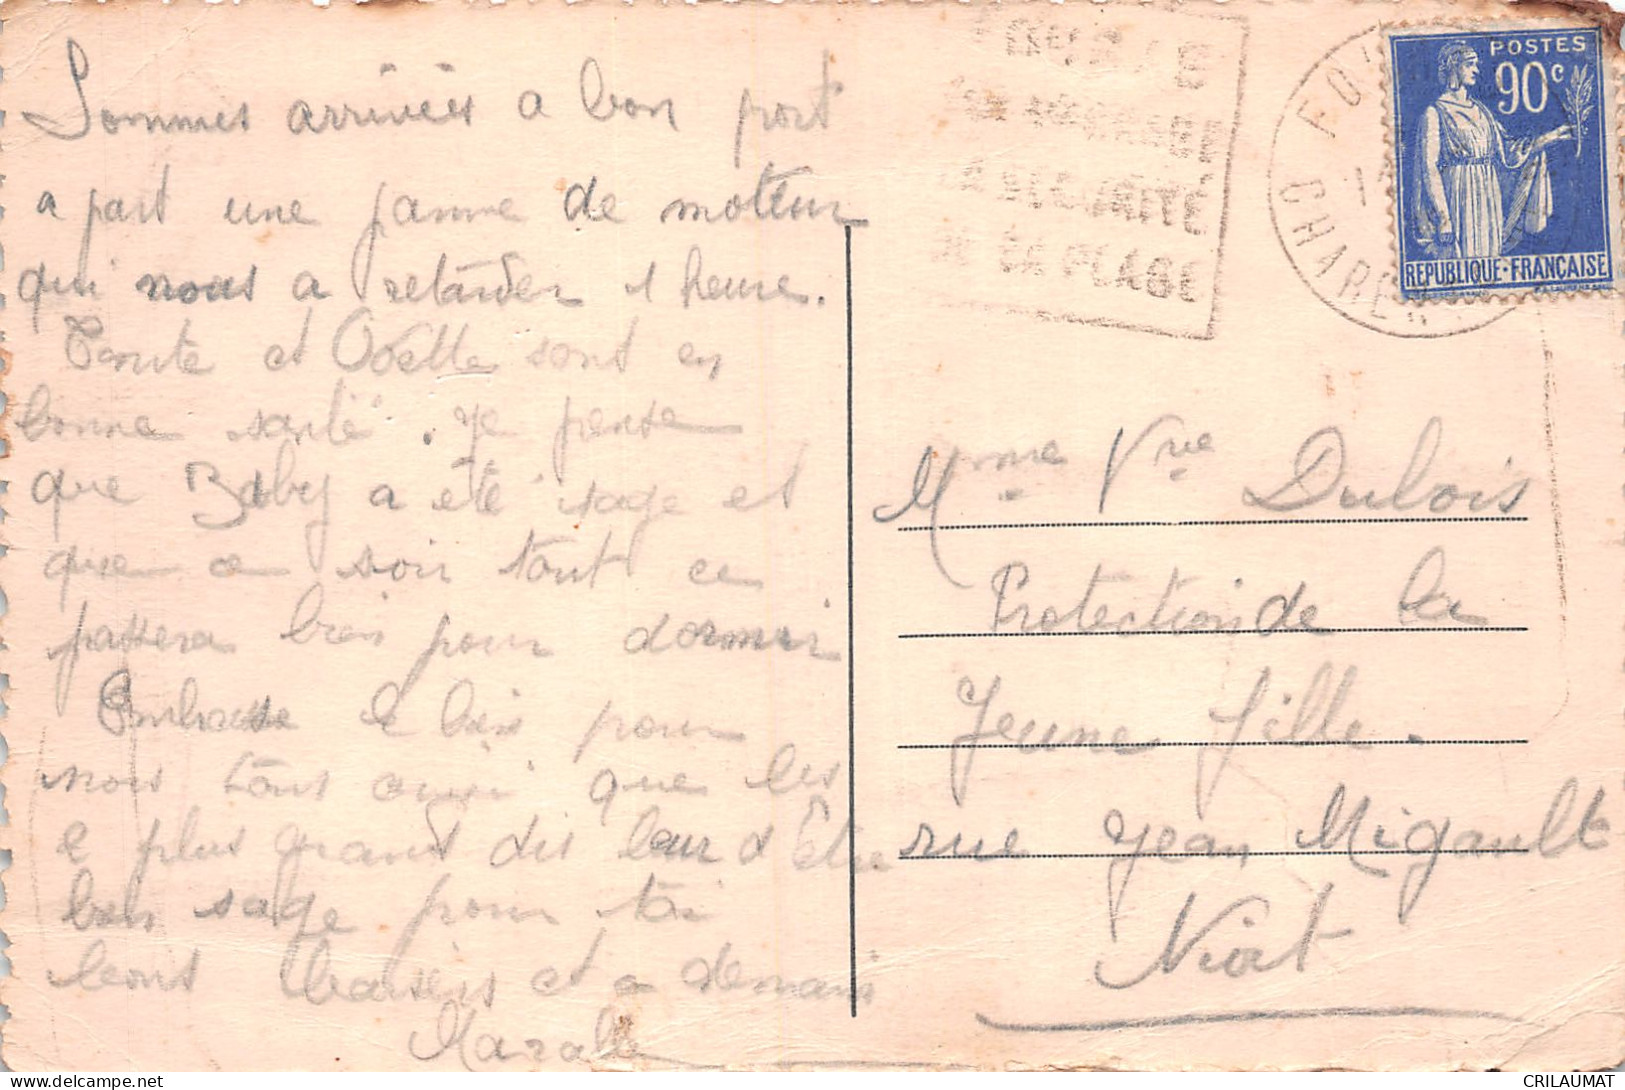 Sommes arrivées a bon port
a part une panne de moteur
qui nous a retarder 1 heure.
Tante et Odette sont en
bonne santé. Je pense
que Baby a été sage et
que ce soir tout ce
passera bien pour dormir
Embrasse le bien pour
nous tous ainsi que les
e plus grand dis leur d'être
bien sage pour toi
bons baisers et a demain
POSTES
90c
REPUBLIQUE-FRANÇAISE
CHAREN
SECURITE
LA PLAGE
Mme Vve Dubois
Protection de la
Jeune fille.
rue Jean Migault
Niort
CRILAUMAT